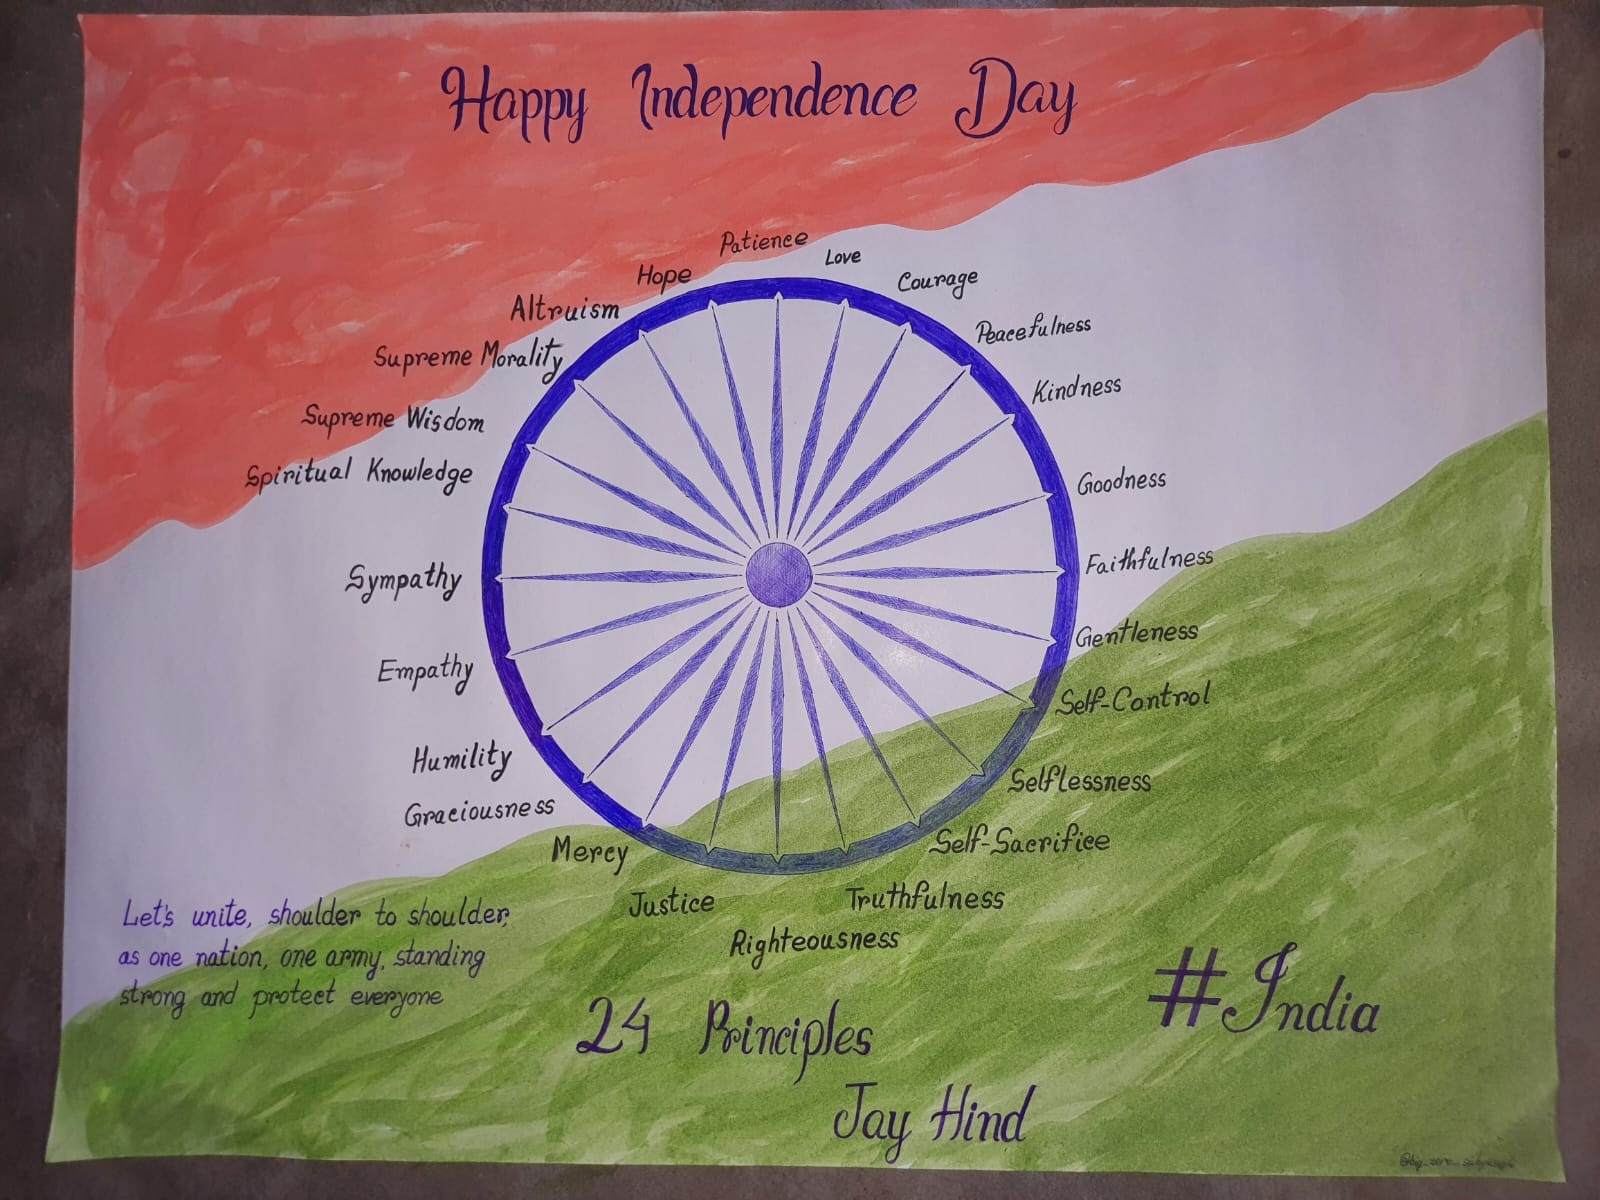 Happy Independence Day
Patience
Love
Courage
Peacefulness
Kindness
Goodness
Faithfulness
Gentleness
Self-Control
Selflessness
Self-Sacrifice
Truthfulness
Righteousness
Justice
Mercy
Graciousness
Humility
Empathy
Sympathy
Spiritual Knowledge
Supreme Wisdom
Supreme Morality
Altruism
Hope
Let's unite, shoulder to shoulder,
as one nation, one army, standing
strong and protect everyone
24 Principles
#India
Jay Hind